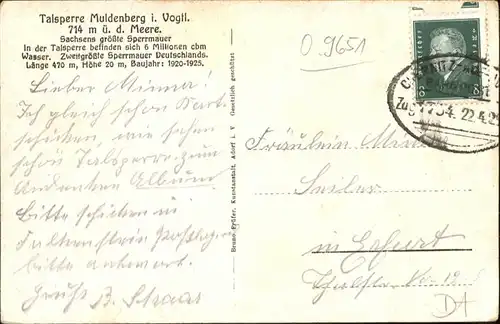 Talsperre Muldenberg i. Vogtl.
714 m ü. d. Meere.
Sachsens größte Sperrmauer
In der Talsperre befinden sich 6 Millionen cbm
Wasser. Zweitgrößte Sperrmauer Deutschlands.
Länge 470 m, Höhe 20 m, Baujahr: 1920-1925.
Lieber Minna!
Ich gleich schon Kart
schicken, wie sehen
schön Talsperre zum
Andenken Album
Bitte schicken in
Falkenstein Postlagern
bitte antwort.
Gruß B. Straas
Bruno Prüfer, Kunstanstalt, Adorf i. V. Gesetzlich geschützt
0.9651
Zug 7754 22.4.29
Fräulein
Seiler
in Erfurt
No. 19
DA